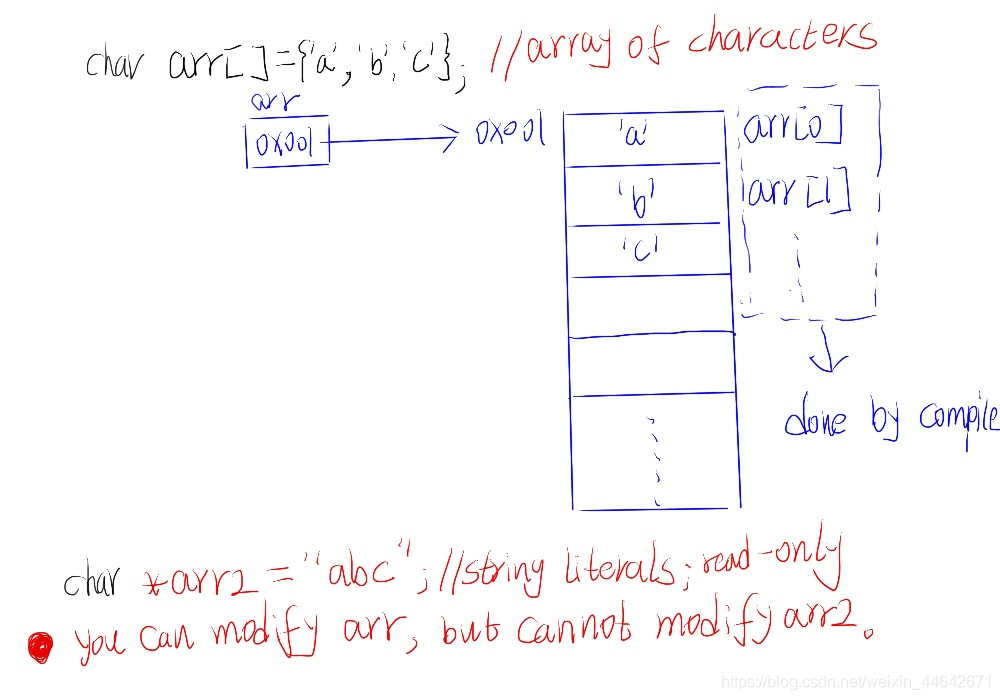 char arr[]={'a','b','c'}; //array of characters
arr
0x001
0x001
'a'
arr[0]
'b'
arr[1]
'c'
done by compile
char *arr2="abc"; //string literals; read-only
you can modify arr, but cannot modify arr2.
https://blog.csdn.net/weixin_44642671